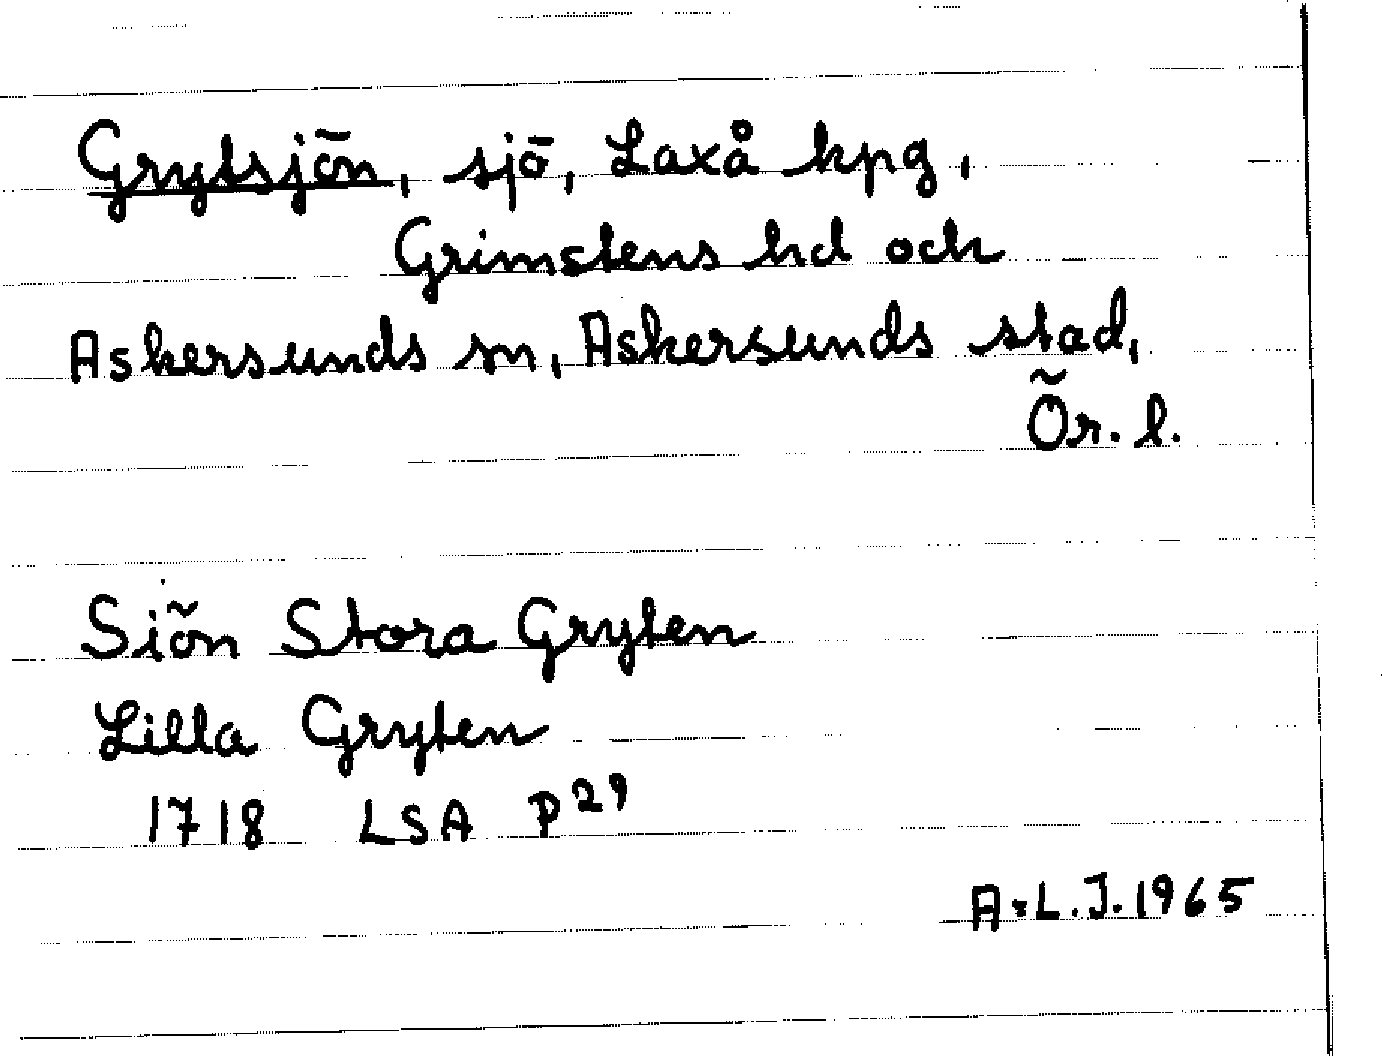 Grytsjön, sjö, Laxå kpg,
Grimstens hd och
Askersunds sn, Askersunds stad,
Ör. l.
Siön Stora Gryten
Lilla Gryten
1718 LSA P29
A.L.J. 1965